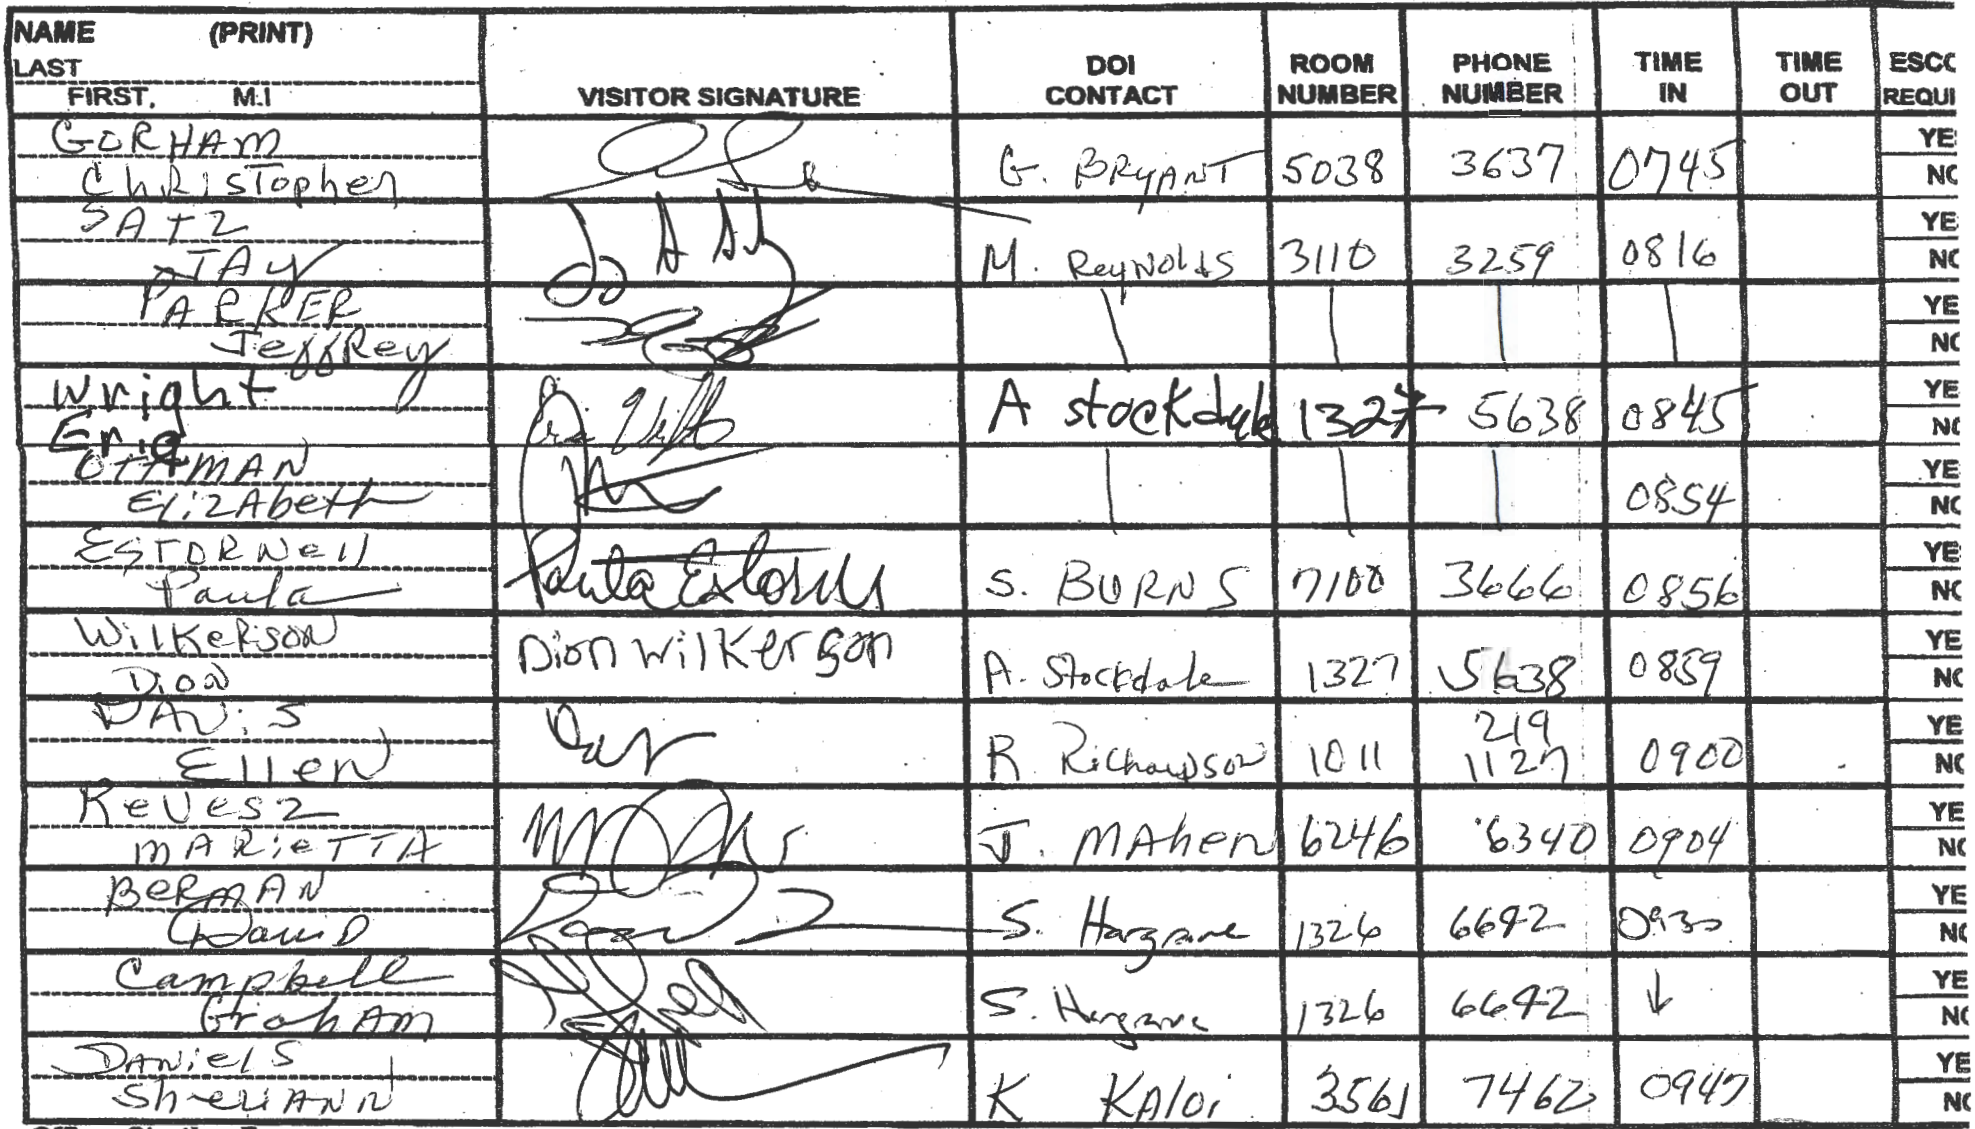 NAME (PRINT)
LAST
FIRST, M.I
VISITOR SIGNATURE
DOI CONTACT
ROOM NUMBER
PHONE NUMBER
TIME IN
TIME OUT
ESCC REQUI
GORHAM
Christopher
G. BRYANT 5038 3637 0745
YE
NO
SATZ
JAY
M. Reynolds 3110 3259 0816
YE
NO
PARKER
Jeffrey
YE
NO
Wright
Eric
A stockdale 1327 5638 0845
YE
NO
OTTMAN
Elizabeth
0854
YE
NO
ESTORNell
Paula
Paula Estornell
S. BURNS 7100 3666 0856
YE
NO
Wilkerson
Dion
Dion Wilkerson
A. Stockdale 1327 5638 0859
YE
NO
DAVIS
Ellen
R Richardson 1011 219 1127 0900
YE
NO
Revesz
MARIETTA
J. MAhen 6246 6340 0904
YE
NO
BERMAN
David
S. Hargrave 1326 6642 0930
YE
NO
Campbell
GrahAm
S. Hargrave 1326 6642 ↓
YE
NO
DANielS
K KAloi 3561 7462 0947
YE
NO